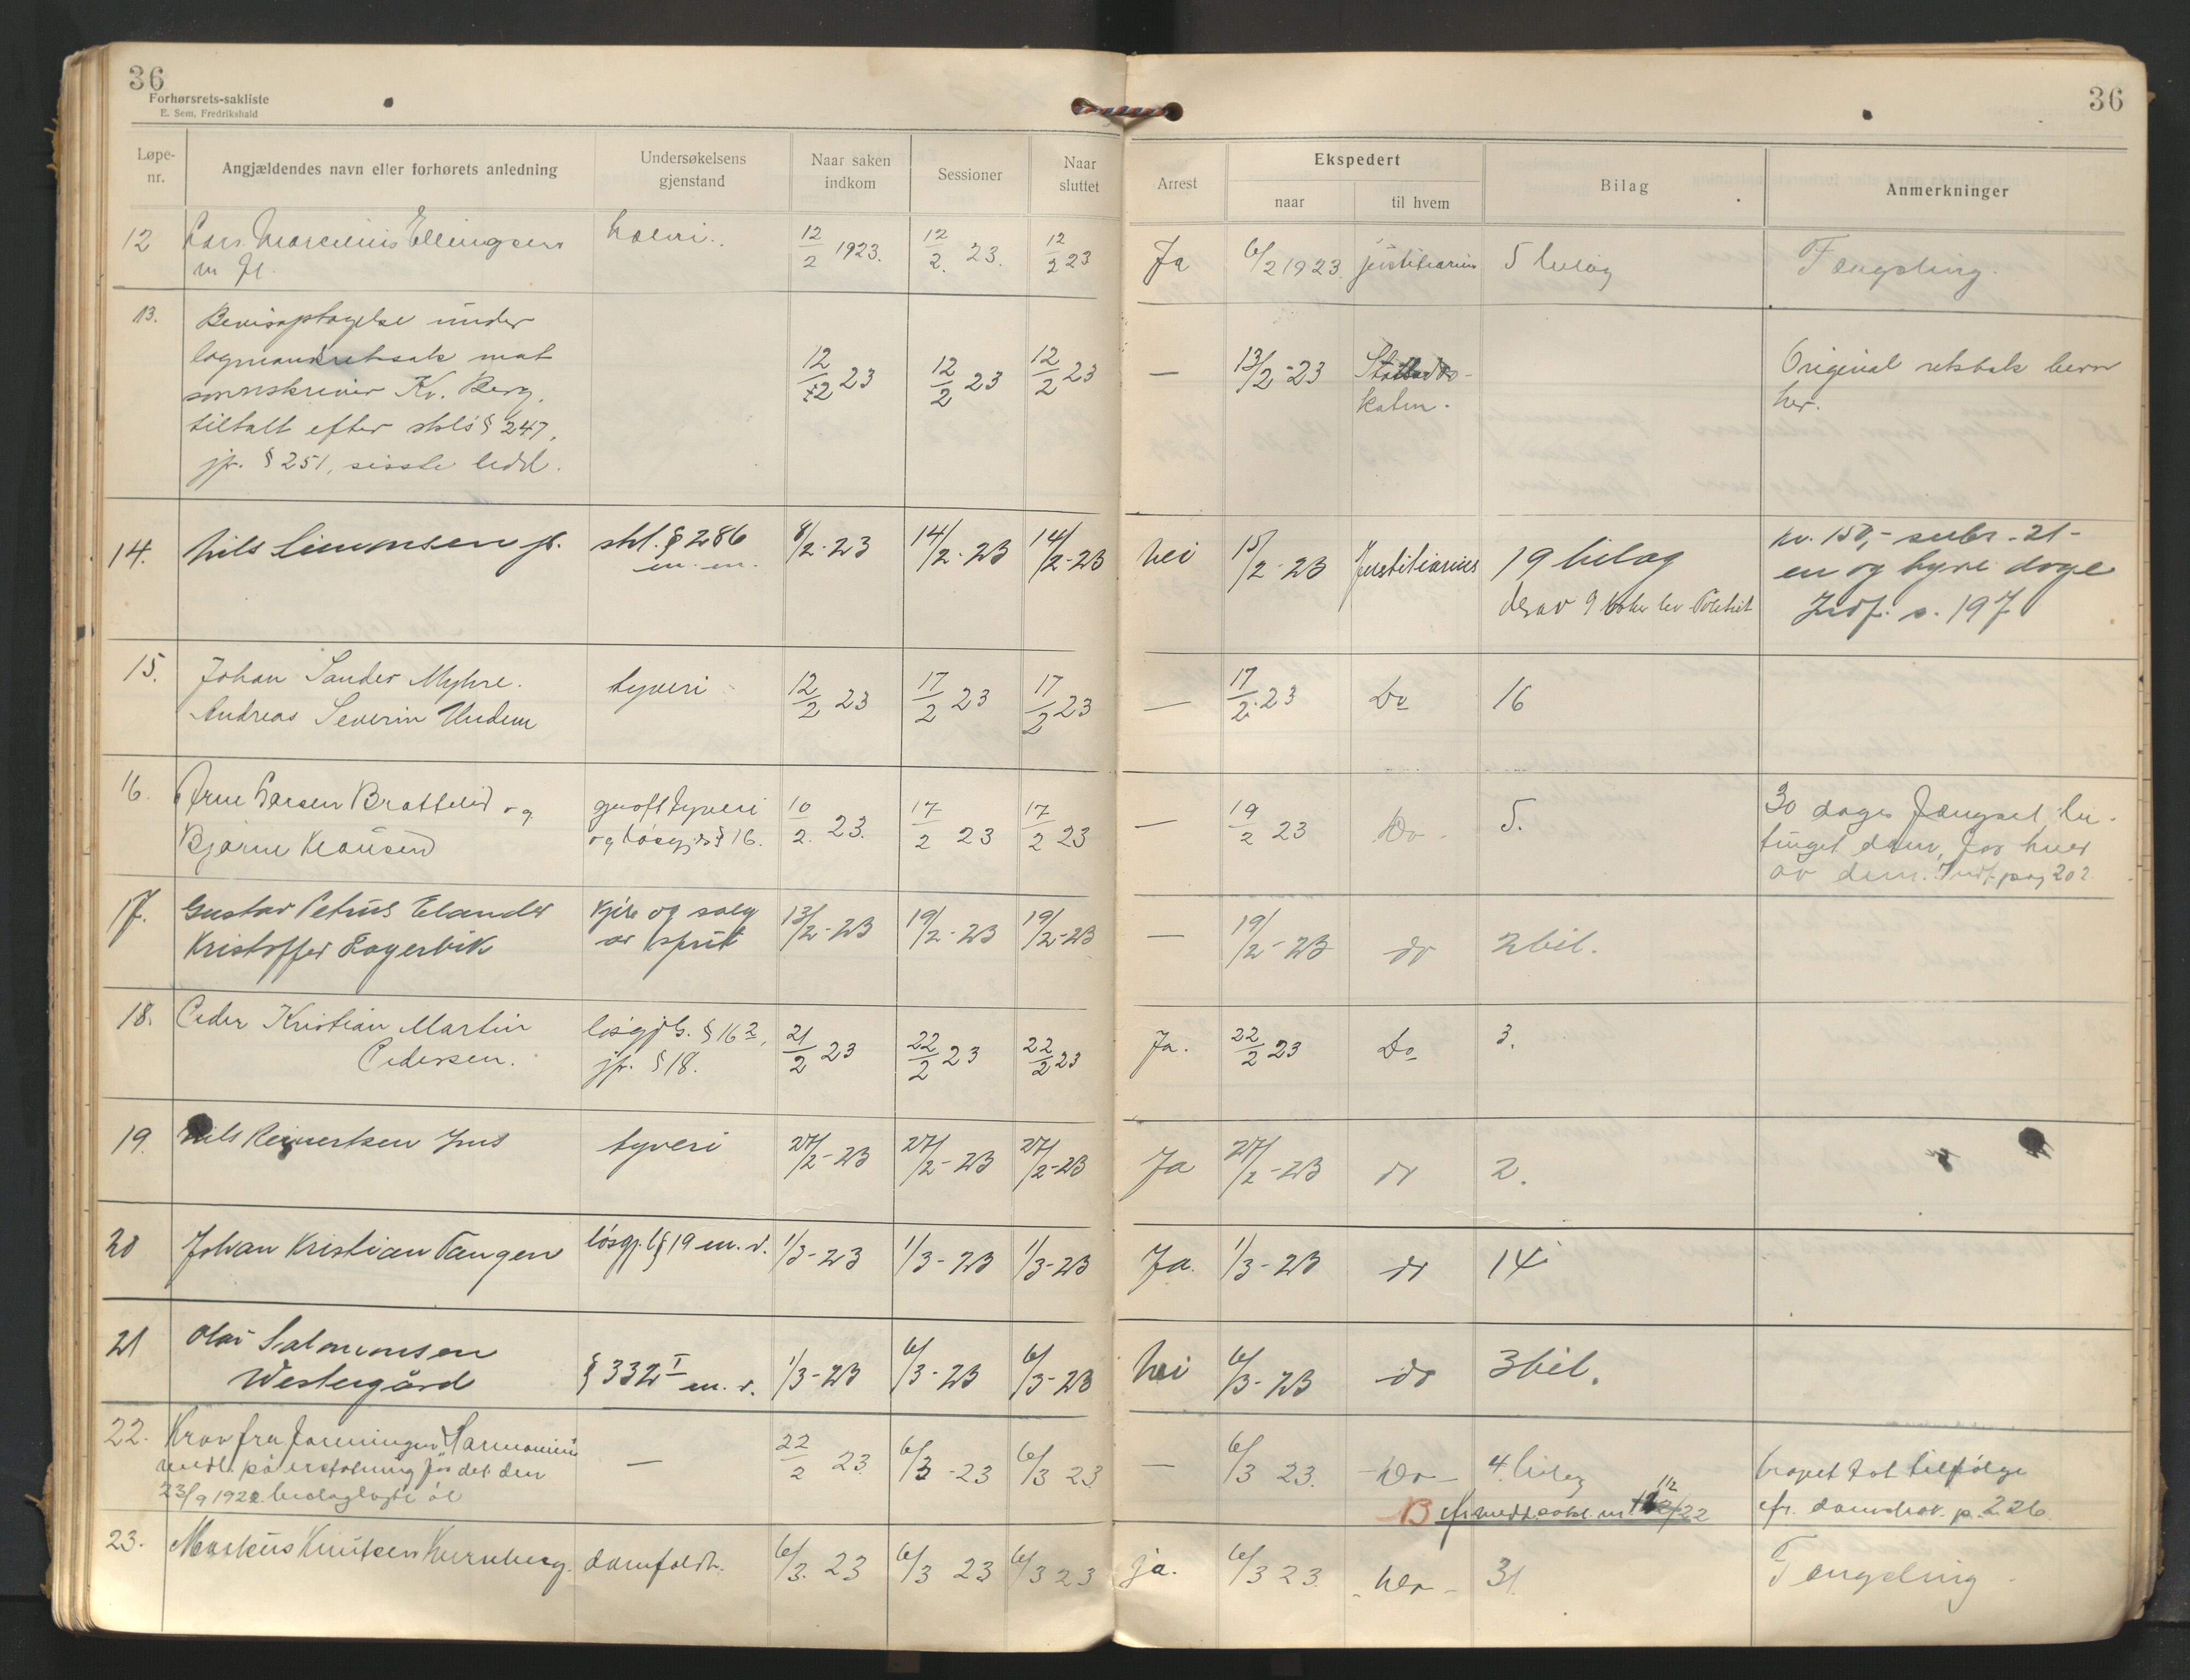 36
Forhørsrets-sakliste
E. Sem, Fredrikshald
36
Løpe-nr.
Angjældendes navn eller forhørets anledning
Undersøkelsens gjenstand
Naar saken indkom
Sessioner
Naar sluttet
Arrest
Ekspedert
naar
til hvem
Bilag
Anmerkninger
12 Lars Ellingsen 12/2 1923. 12/2. 23. 12/2 23 Ja 6/2 1923. justitiarius 5 bilag Fængsling.
m fl.
13. Bevisoptagelse under
lagmandsretssak mot
sorenskriver Kr. Berg, 12/2 23 12/2 23 12/2 23 — 13/2-23 Original retsbok bero
tiltalt efter strls § 247, her.
jfr. § 251, sisste ledd.
14. Nils Simonsen jr. strl. § 286 8/2-23 14/2-23 14/2-23 Nei 15/2-23 Justitiarius 19 bilag kr. 150,- subs. 21-
m. m. derav 9 en og tyve dage
Indf. s. 197
15. Johan Sander Myhre. tyveri 12/2 23 17/2 23 17/2 23 — 17/2.23 Do 16
Andreas Severin Undem
16. Arne Larsen Brattelid og groft tyveri 10/2. 23. 17/2 23 17/2 23 — 19/2 23 Do - 5. 30 dages fængsel be-
Bjarne Klausen og løsgj. § 16. tinget dom, for hver
av dem. Indf. pag 202
17. Gustav Petrus Elander kjøb og salg 13/2-23 19/2-23 19/2-23 — 19/2-23 do 2 bil.
Kristoffer Lagervik av sprit
18. Peder Kristian Martin løsgjl. § 16 2, 21/2 23 22/2 23 22/2 23 Ja. 22/2 23 Do 3.
Pedersen. jfr. § 18.
19. Nils Reinertsen tyveri 27/2-23 27/2-23 27/2-23 Ja 27/2-23 do 2.
20 Johan Kristian Tangen løsgj. l § 19 m. v. 1/3-23 1/3-23 1/3-23 Ja. 1/3-23 do 14
21 Olav Salomonsen
Westergård § 332 I m. v. 1/3-23 6/3-23 6/3-23 Nei 6/3-23 do 3 bil.
22. Krav fra foreningen — 22/2 23 6/3-23 6/3 23 — 6/3 23. - Do - 4 bilag tat tilfølge
medl. på erstatning for det den B p. 226.
23/9 1922 beslaglagte øl
23. Markus Knutsen 6/3. 23 6/3 23 6/3 23 ja. 6/3 23. - Do - 31. Fængsling.